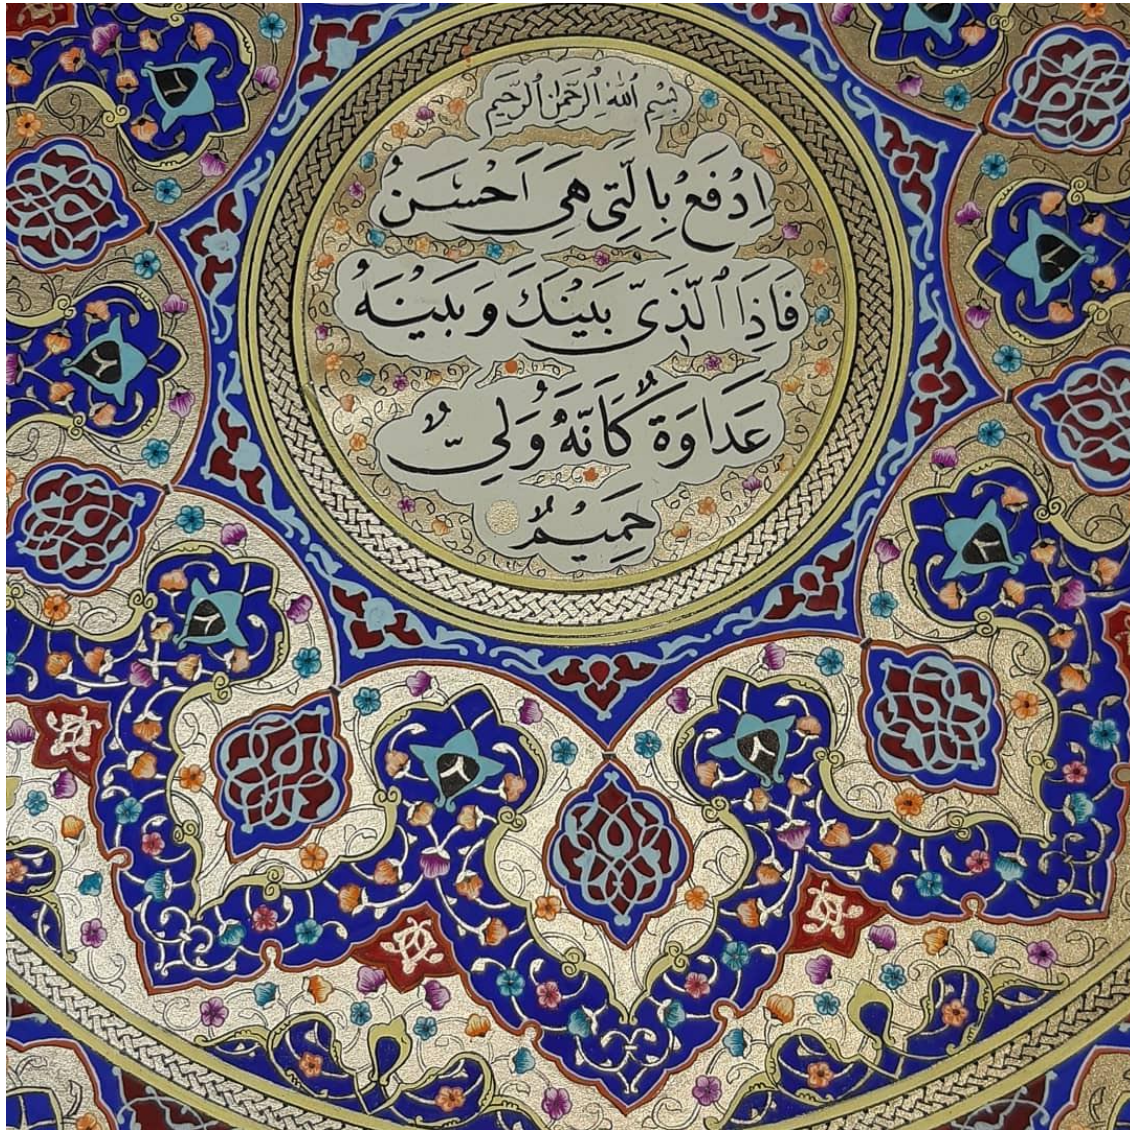 بِسْمِ اللّٰهِ الرَّحْمٰنِ الرَّحِيمِ
اِدْفَعْ بِالَّتِى هِىَ اَحْسَنُ
فَاِذَا ٱلَّذِىّ بَيْنَكَ وَبَيْنَهُ
عَدَاوَةٌ كَاَنَّهُ وَلِىٌّ
حَمِيمٌ